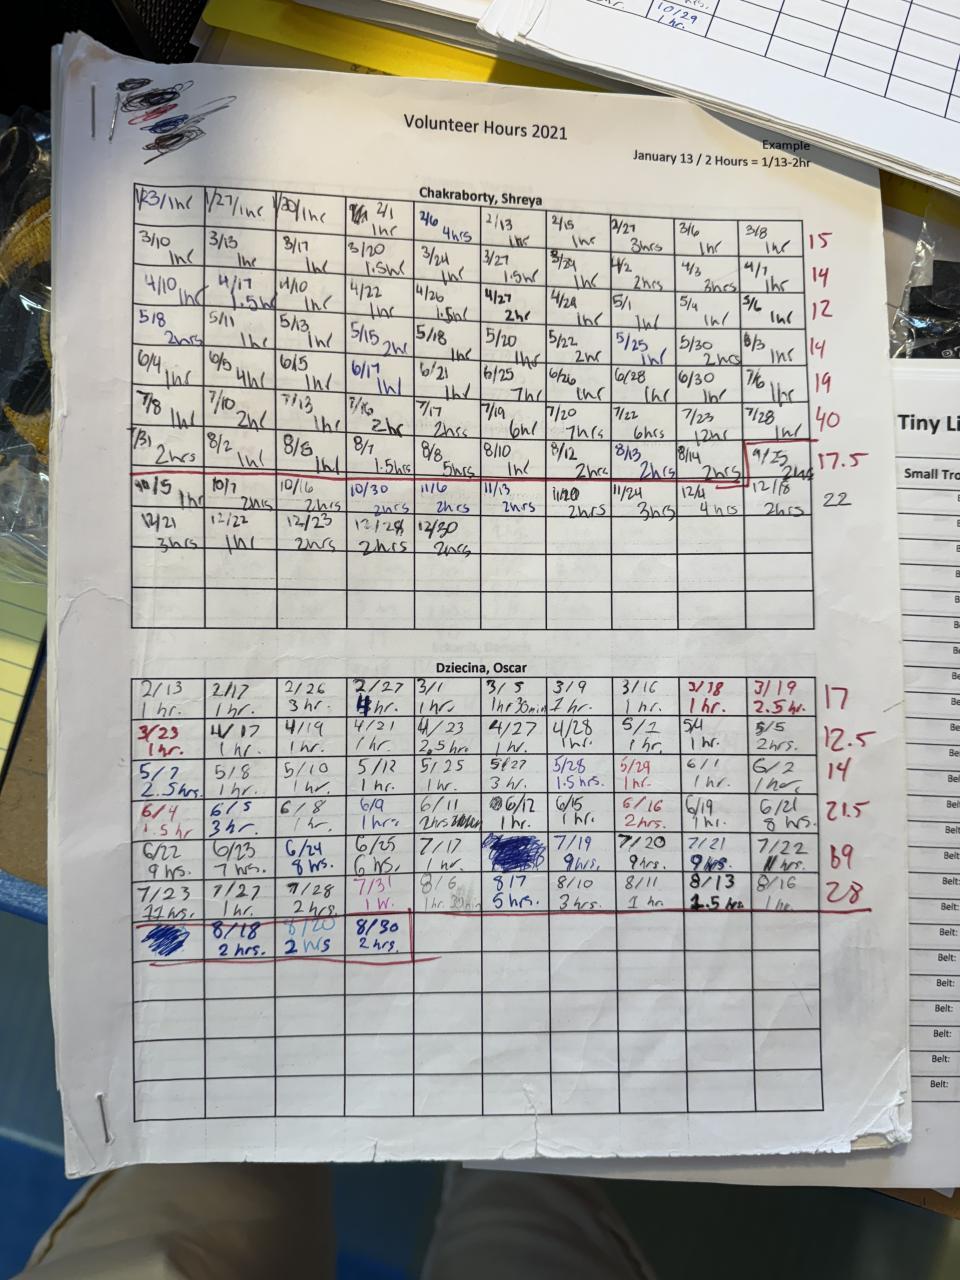 10/29
1 hr.
Volunteer Hours 2021
Example
January 13 / 2 Hours = 1/13-2hr
Chakraborty, Shreya
1/23/1hr 1/27/1hr 1/30/1hr 2/1 2/6 2/13 2/15 2/27 3/6 3/8
1hr 4hrs 1hr 1hr 3hrs 1hr 1hr 15
3/10 3/13 3/17 3/20 3/24 3/27 4/2 4/3 4/7
1hr 1hr 1hr 1.5hr 1hr 1.5hr 1hr 2hrs 3hrs 1hr 14
4/10 4/17 4/10 4/22 4/26 4/27 4/29 5/1 5/4 5/6
1hr 1.5hr 1hr 1hr 1.5hr 2hr 1hr 1hr 1hr 1hr 12
5/8 5/11 5/13 5/15 5/18 5/20 5/22 5/25 5/30 6/3
2hrs 1hr 1hr 2hr 1hr 1hr 2hr 1hr 2hrs 1hr 14
6/4 6/5 6/15 6/17 6/21 6/25 6/26 6/28 6/30 7/6
1hr 4hr 1hr 1hr 1hr 7hr 1hr 1hr 1hr 1hr 19
7/8 7/10 7/13 7/16 7/17 7/19 7/20 7/22 7/23 7/28
1hr 2hr 1hr 2hr 2hrs 6hr 7hrs 6hrs 12hr 1hr 40
7/31 8/2 8/5 8/7 8/8 8/10 8/12 8/13 8/14 9/25
2hrs 1hr 1hr 1.5hrs 5hrs 1hr 2hrs 2hrs 2hrs 2hrs 17.5
10/5 10/7 10/16 10/30 11/6 11/13 11/20 11/24 12/4 12/18
1hr 2hrs 2hrs 2hrs 2hrs 2hrs 2hrs 3hrs 4hrs 2hrs 22
12/21 12/22 12/23 12/28 12/30
3hrs 1hr 2hrs 2hrs 2hrs
Dziecina, Oscar
2/13 2/17 2/26 2/27 3/1 3/5 3/9 3/16 3/18 3/19
1 hr. 1 hr. 3 hr. 4 hr. 1 hr. 1hr 30min 1 hr. 1 hr. 2.5 hr. 17
3/23 4/17 4/19 4/21 4/23 4/27 4/28 5/4 5/5
1 hr. 1 hr. 1 hr. 1 hr. 2.5 hr. 1 hr. 1 hr. 1 hr. 1 hr. 2hrs. 12.5
5/7 5/8 5/10 5/12 5/25 5/27 5/28 5/29 6/1 6/2
2.5 hrs. 1 hr. 1 hr. 1 hr. 1 hr. 3 hr. 1.5 hrs. 1hr. 1 hr. 14
6/4 6/5 6/8 6/9 6/11 6/12 6/15 6/16 6/19 6/21
1.5 hr 3 hr. 1 hr. 1 hrs 2hrs 1 hr. 1 hr. 2hrs. 1 hr. 8 hrs. 21.5
6/22 6/23 6/24 6/25 7/17 7/19 7/20 7/21 7/22
9 hrs. 7 hrs. 8 hrs. 6 hrs. 1 hr. 9 hrs. 9 hrs. 9 hrs. 11 hrs. 69
7/23 7/27 7/28 7/31 8/6 8/7 8/10 8/11 8/13 8/16
11 hrs. 1 hr. 2 hrs. 1 hr. 1hr 30min 5 hrs. 3 hrs. 1 hr. 1.5 hrs 1 hr. 28
8/18 8/20 8/30
2 hrs. 2 hrs 2 hrs.
Tiny Li
Small Tro
Belt:
Belt:
Belt:
Belt:
Belt:
Belt: